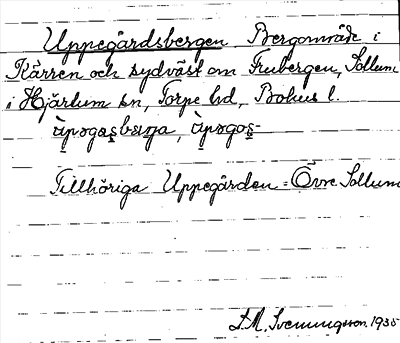 Uppegårdsbergen Bergområde i
Kärren och sydväst om Frubergen, Sollum
i Hjärtum sn, Torpe hd, Bohus l.
Tillhöriga Uppegården = Övre Sollum
S.M. Svenungsson 1935